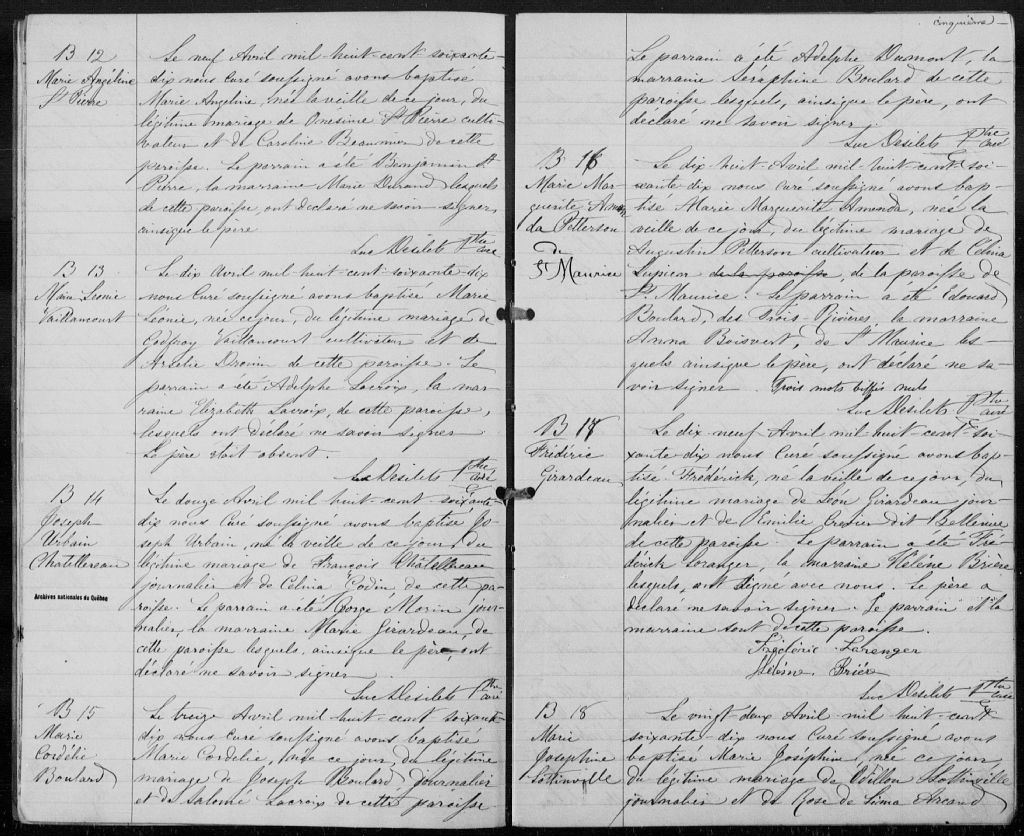 B 12
Marie Angéline
St Pierre
Le neuf Avril mil huit-cent soixante-
dix nous Curé soussigné avons baptisé
Marie Angeline, née la veille de ce jour, du
légitime mariage de Onésime St Pierre culti-
vateur et de Caroline Beaumier de cette
paroisse. Le parrain a été Benjamin St
Pierre, la marraine Marie Durand lesquels
de cette paroisse, ont déclaré ne savoir signer,
ainsique le père
Luc Desilets Ptre
curé
B 13
Marie Leonie
Vaillancourt
Le dix Avril mil huit-cent-soixante-dix
nous Curé soussigné avons baptisé Marie
Léonie, née ce jour, du légitime mariage de
Godfroy Vaillancourt cultivateur et de
Arbélie Drouin de cette paroisse. Le
parrain a été Adelphe Lacroix, la mar-
raine Elizabeth Lacroix, de cette paroisse,
lesquels ont déclaré ne savoir signer
Le père était absent.
Luc Desilets Ptre
curé
B 14
Joseph
Urbain
Chatellereau
Le douze Avril mil huit-cent soixante-
dix nous Curé soussigné avons baptisé Jo-
seph Urbain, né la veille de ce jour, du
légitime mariage de François Châtellereau
journalier et de Celina Godin, de cette pa-
roisse. Le parrain a été George Morin jour-
nalier, la marraine Marie Girardeau, de
cette paroisse lesquels, ainsique le père, ont
déclaré ne savoir signer
Luc Desilets Ptre
curé
Archives nationales du Québec
B 15
Marie
Cordélie
Boulard
Le treize Avril mil huit-cent soixante-
dix nous Curé soussigné avons baptisé
Marie Cordelie, née ce jour, du légitime
mariage de Joseph Boulard journalier
et de Salomé Lacroix de cette paroisse
cinquième
Le parrain a été Adelphe Dumont, la
marraine Seraphine Boulard de cette
paroisse lesquels, ainsique le père, ont
déclaré ne savoir signer
Luc Desilets Ptre
curé
B 16
Marie Mar-
guerite Aman
da Petterson
de
St Maurice
Le dix huit Avril mil huit-cent soi-
xante dix nous Curé soussigné avons bap-
tisé Marie Marguerite Amanda, née la
veille de ce jour, du légitime mariage de
Augustin Petterson cultivateur et de Célina
Lupien de la paroisse, de la paroisse de
St Maurice. Le parrain a été Edouard
Boulard, des Trois-Rivières la marraine
Anna Boisvert, de St Maurice les-
quels ainsique le père, ont déclaré ne sa-
voir signer Trois mots biffés nuls
Luc Desilets Ptre
curé
B 17
Frédéric
Girardeau
Le dix-neuf Avril mil huit-cent-soi-
xante dix nous Curé soussigné avons bap-
tisé Fréderick, né la veille de ce jour, du
légitime mariage de Léon Girardeau jour-
nalier et de Emilie Grenier dit Bellerive
de cette paroisse. Le parrain a été Fré-
dérick Loranger, la marraine Hélène Brière
lesquels, ont signé avec nous. Le père a
déclaré ne savoir signer. Le parrain et la
marraine sont de cette paroisse.
Frédéric Laranger
Luc Desilets Ptre
curé
B 18
Marie
Josephine
Lottinville
Le vingt deux Avril mil huit-cent
soixante-dix nous Curé soussigné avons
baptisé Marie Joséphine, née ce jour
du légitime mariage de Odillon Lottinville
journalier et de Rose de Lima Arcand